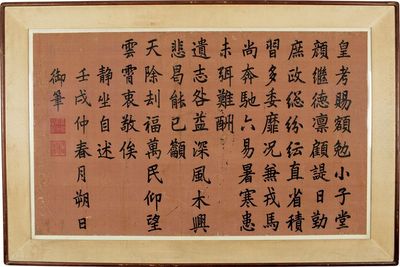 皇考賜額勉小子堂
顏繼德凛顧諟日勤
庶政總紛紜直省積
習多委靡況兼戎馬
尚奔馳六易暑寒患
未弭難酬
遺志咎益深風木興
悲曷能已籲
天除刦福萬民仰望
雲霄衷敬俟
靜坐自述
壬戌仲春月朔日
御筆